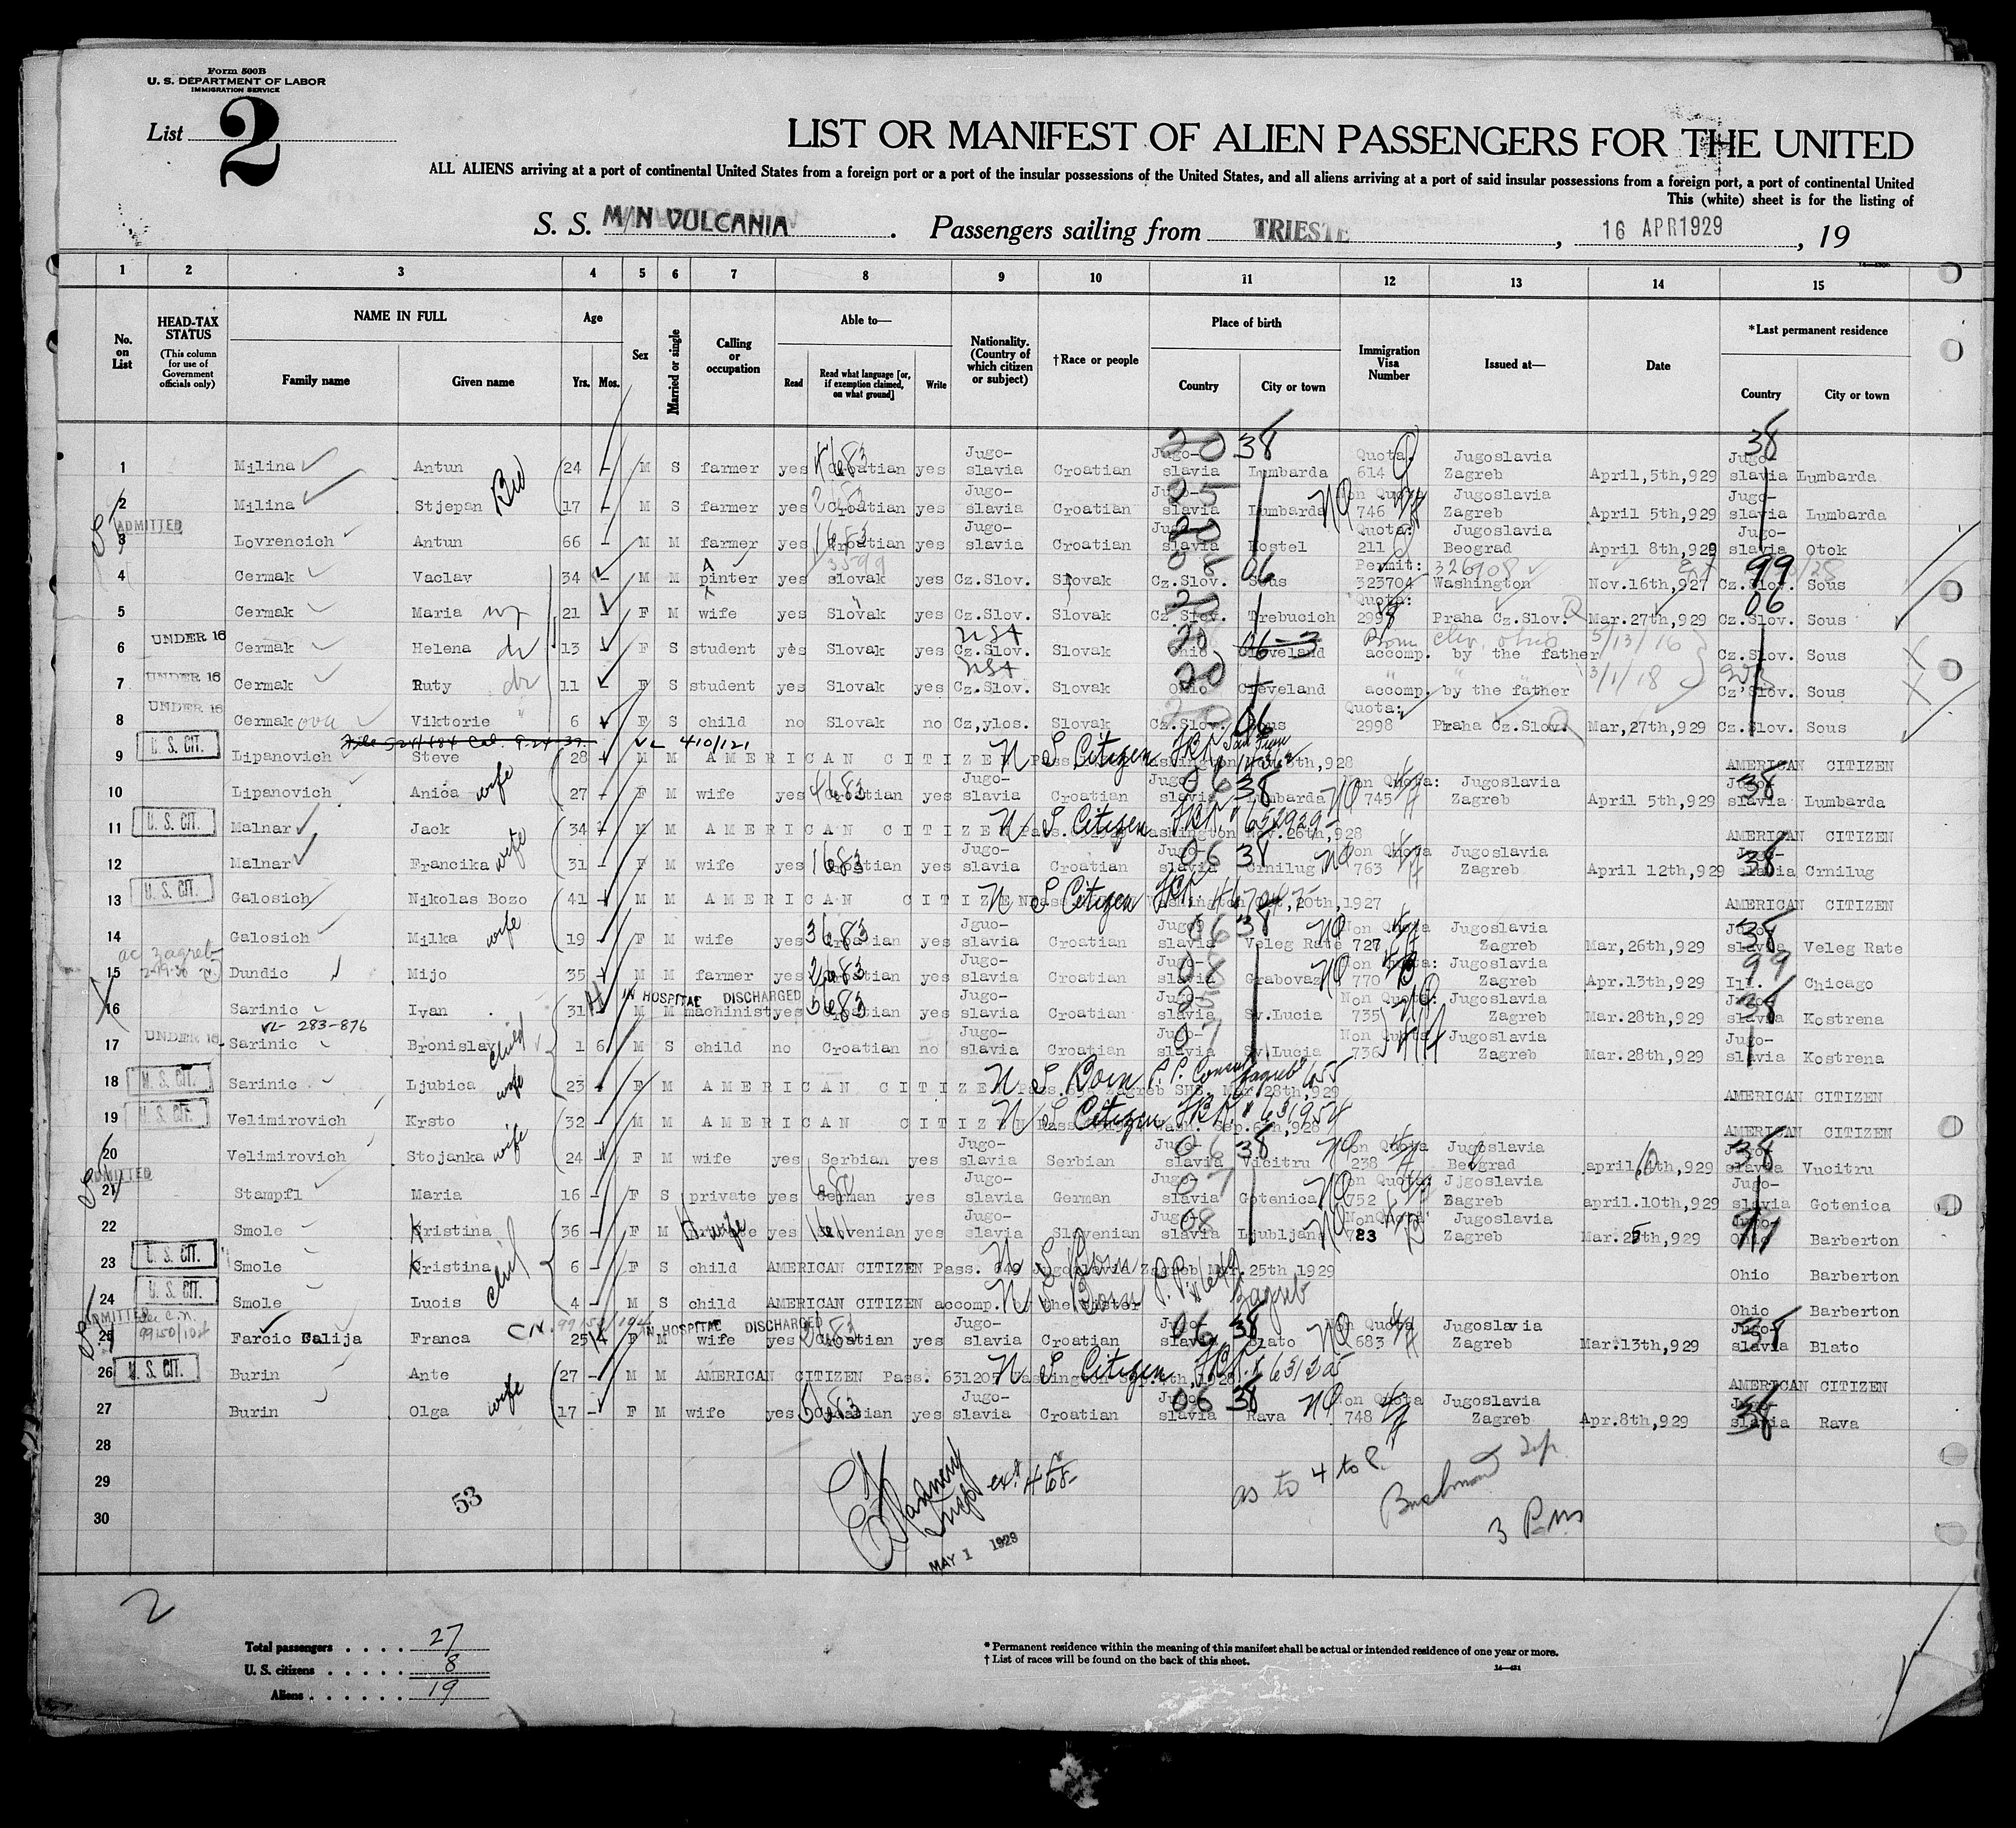 Form 500B
U. S. DEPARTMENT OF LABOR
IMMIGRATION SERVICE
List 2
LIST OR MANIFEST OF ALIEN PASSENGERS FOR THE UNITED
ALL ALIENS arriving at a port of continental United States from a foreign port or a port of the insular possessions of the United States, and all aliens arriving at a port of said insular possessions from a foreign port, a port of continental United
This (white) sheet is for the listing of
S. S. M/N VULCANIA. Passengers sailing from TRIESTE, 16 APR 1929, 19
1 2 3 4 5 6 7 8 9 10 11 12 13 14 15
No. on List
HEAD-TAX STATUS (This column for use of Government officials only)
NAME IN FULL Family name Given name
Age Yrs. Mos.
Sex
Married or single
Calling or occupation
Able to— Read Read what language [or, if exemption claimed, on what ground] Write
Nationality. (Country of which citizen or subject)
†Race or people
Place of birth Country City or town
Immigration Visa Number
Issued at—
Date
*Last permanent residence Country City or town
1 Milina Antun 24 - M S farmer yes Croatian yes Jugo-slavia Croatian Jugo-slavia Lumbarda Quota. 614 Jugoslavia Zagreb April,5th,929 Jugo-slavia Lumbarda
2 Milina Stjepan 17 - M S farmer yes Croatian yes Jugo-slavia Croatian Jugo-slavia Lumbarda Non Quota 746 Jugoslavia Zagreb April 5th,929 Jugo-slavia Lumbarda
ADMITTED
3 Lovrencich Antun 66 - M M farmer yes Croatian yes Jugo-slavia Croatian Jugo-slavia Kostel Quota: 211 Jugoslavia Beograd April 8th,929 Jugo-slavia Otok
4 Cermak Vaclav 34 - M M pinter yes slovak yes Cz.Slov. Slovak Cz.Slov. Sous Permit: 323704 326908 Washington Nov.16th,927 Cz.Slov. Sous
5 Cermak Maria 21 - F M wife yes " yes Cz.Slov. Slovak Cz Slov. Trebucich Quota: 2998 Praha Cz.Slov. Mar.27th,929 Cz.Slov. Sous
6 UNDER 16 Cermak Helena 13 - F S student yes Slovak yes Cz.Slov. USA Slovak Ohio Cleveland Born Clev. Ohio 5/13/16 accomp. by the father Cz.Slov. Sous
7 UNDER 16 Cermak Ruty 11 - F S student yes Slovak yes Cz.Slov. USA Slovak Ohio Cleveland accomp. by the father 3/1/18 Cz Slov. Sous
8 UNDER 16 Cermak ova Viktorie 6 F S child no Slovak no Cz,ylos. Slovak Cz.Slov. Sous Quota: 2998 Praha Cz.Slov. Mar,27th,929 Cz.Slov. Sous
VL 410/121
9 U. S. CIT. Lipanovich Steve 28 - M M AMERICAN CITIZEN U S Citizen AMERICAN CITIZEN
10 Lipanovich Anica wife 27 - F M wife yes Croatian yes Jugo-slavia Croatian Jugo-slavia Lumbarda Non Quota: 745 Jugoslavia Zagreb April 5th,929 Jugo-slavia Lumbarda
11 U. S. CIT. Malnar Jack 34 M M AMERICAN CITIZEN U S Citizen Washington Nov.26th,928 AMERICAN CITIZEN
12 Malnar Francika wife 31 - F M wife yes Croatian yes Jugo-slavia Croatian Jugo-slavia Crnilug Non Quota 763 Jugoslavia Zagreb April 12th,929 Jugo-slavia Crnilug
13 U. S. CIT. Galosich Nikolas Bozo 41 - M M AMERICAN CITIZEN U S Citizen AMERICAN CITIZEN
14 Galosich Milka wife 19 - F M wife yes Croatian yes Jguo-slavia Croatian Jugo-slavia Veleg Rate Non Quota 727 Jugoslavia Zagreb Mar,26th,929 Jugo-slavia Veleg Rate
15 Dundic Mijo 35 - M M farmer yes Croatian yes Jugo-slavia Croatian Jugo-slavia Grabovaz Non Quota: 770 Jugoslavia Zagreb Apr.13th,929 Ill. Chicago
IN HOSPITAL DISCHARGED
16 Sarinic Ivan 31 M M machinist yes Croatian yes Jugo-slavia Croatian Jugo-slavia Sv.Lucia Non Quota: 735 Jugoslavia Zagreb Mar.28th,929 Jugo-slavia Kostrena
VL 283-876
17 UNDER 16 Sarinic Bronislav child 1 6 M S child no Croatian no Jugo-slavia Croatian Jugo-slavia Sv.Lucia Non Quota 736 Jugoslavia Zagreb Mar.28th,929 Jugo-slavia Kostrena
18 U. S. CIT. Sarinic Ljubica wife 23 F M AMERICAN CITIZEN U S Born Zagreb SHS. Mar.28th,929 AMERICAN CITIZEN
19 U. S. CIT. Velimirovich Krsto 32 - M M AMERICAN CITIZEN U S Citizen Sep.6th,928 AMERICAN CITIZEN
20 Velimirovich Stojanka wife 24 F M wife yes Serbian yes Jugo-slavia Serbian Jugo-slavia Vucitru Non Quota 238 Jugoslavia Belgrad april,4th,929 Jugo-slavia Vucitru
ADMITTED
21 Stampfl Maria 16 - F S private yes German yes Jugo-slavia German Jugo-slavia Gotenica Non Quota 752 Jjgoslavia Zagreb april.10th,929 Jugo-slavia Gotenica
22 Smole Kristina 36 - F M wife yes Slovenian yes Jugo-slavia Slovenian Jugo-slavia Ljubljana NonQuota 783 Jugoslavia Zagreb Mar.25th,929 Ohio Barberton
23 U. S. CIT. Smole Kristina child 6 - F S child AMERICAN CITIZEN Pass. 649 Jugoslavia Zagreb Mar.25th 1929 U S Born Ohio Barberton
24 U. S. CIT. Smole Luois 4 - M S child AMERICAN CITIZEN accomp. by the sister U S Born Zagreb Ohio Barberton
ADMITTED
IN HOSPITAL DISCHARGED
25 Farcic Falija Franca 25 F M wife yes Croatian yes Jugo-slavia Croatian Jugo-slavia Blato Non Quota 683 Jugoslavia Zagreb Mar.13th,929 Jugo-slavia Blato
26 U. S. CIT. Burin Ante 27 - M M AMERICAN CITIZEN Pass. 631205 Washington U S Citizen AMERICAN CITIZEN
27 Burin Olga wife 17 - F M wife yes Croatian yes Jugo-slavia Croatian Jugo-slavia Rava Non Quota 748 Jugoslavia Zagreb Apr.8th,929 Jugo-slavia Rava
28
29
30
53
MAY 1 1929
as to 4 to 8
3 P.M.
2
Total passengers . . . . 27
U. S. citizens . . . . . 8
Aliens . . . . . . 19
* Permanent residence within the meaning of this manifest shall be actual or intended residence of one year or more.
† List of races will be found on the back of this sheet.